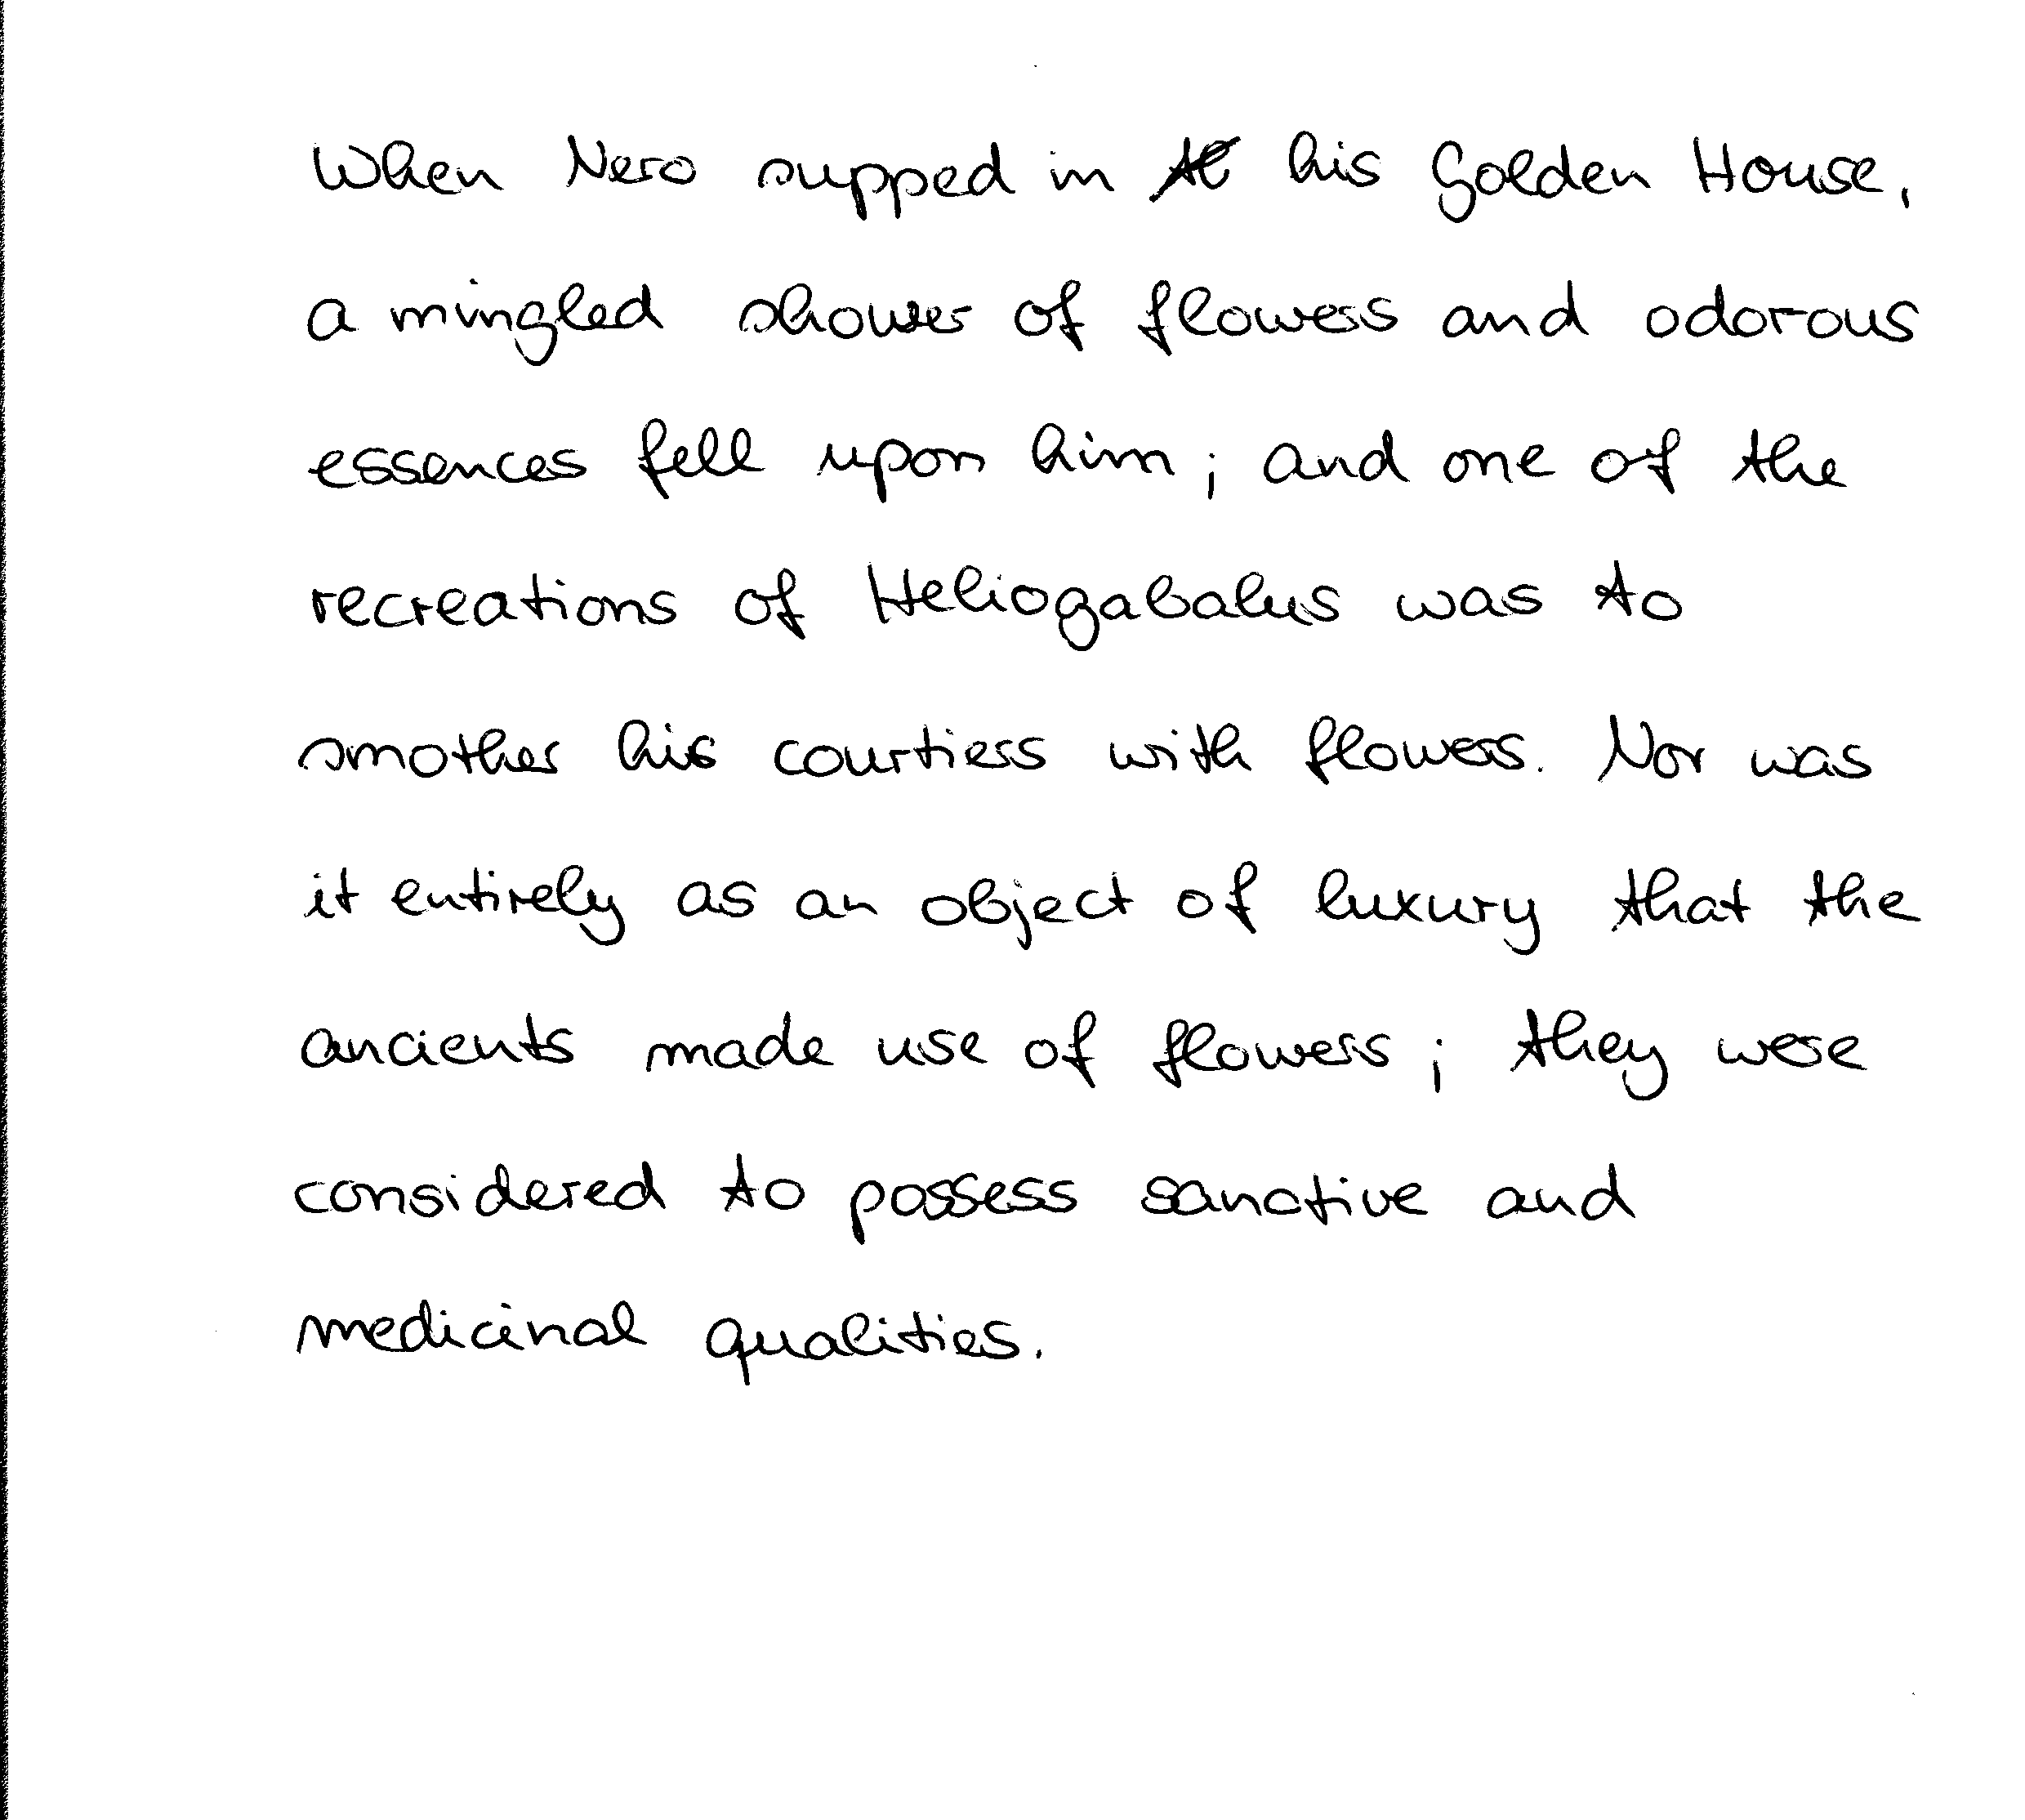 When Nero supped in his Golden House,
a mingled shower of flowers and odorous
essences fell upon him; and one of the
recreations of Heliogabalus was to
smother his courtiers with flowers. Nor was
it entirely as an object of luxury that the
ancients made use of flowers; they were
considered to possess sanctive and
medicinal qualities.